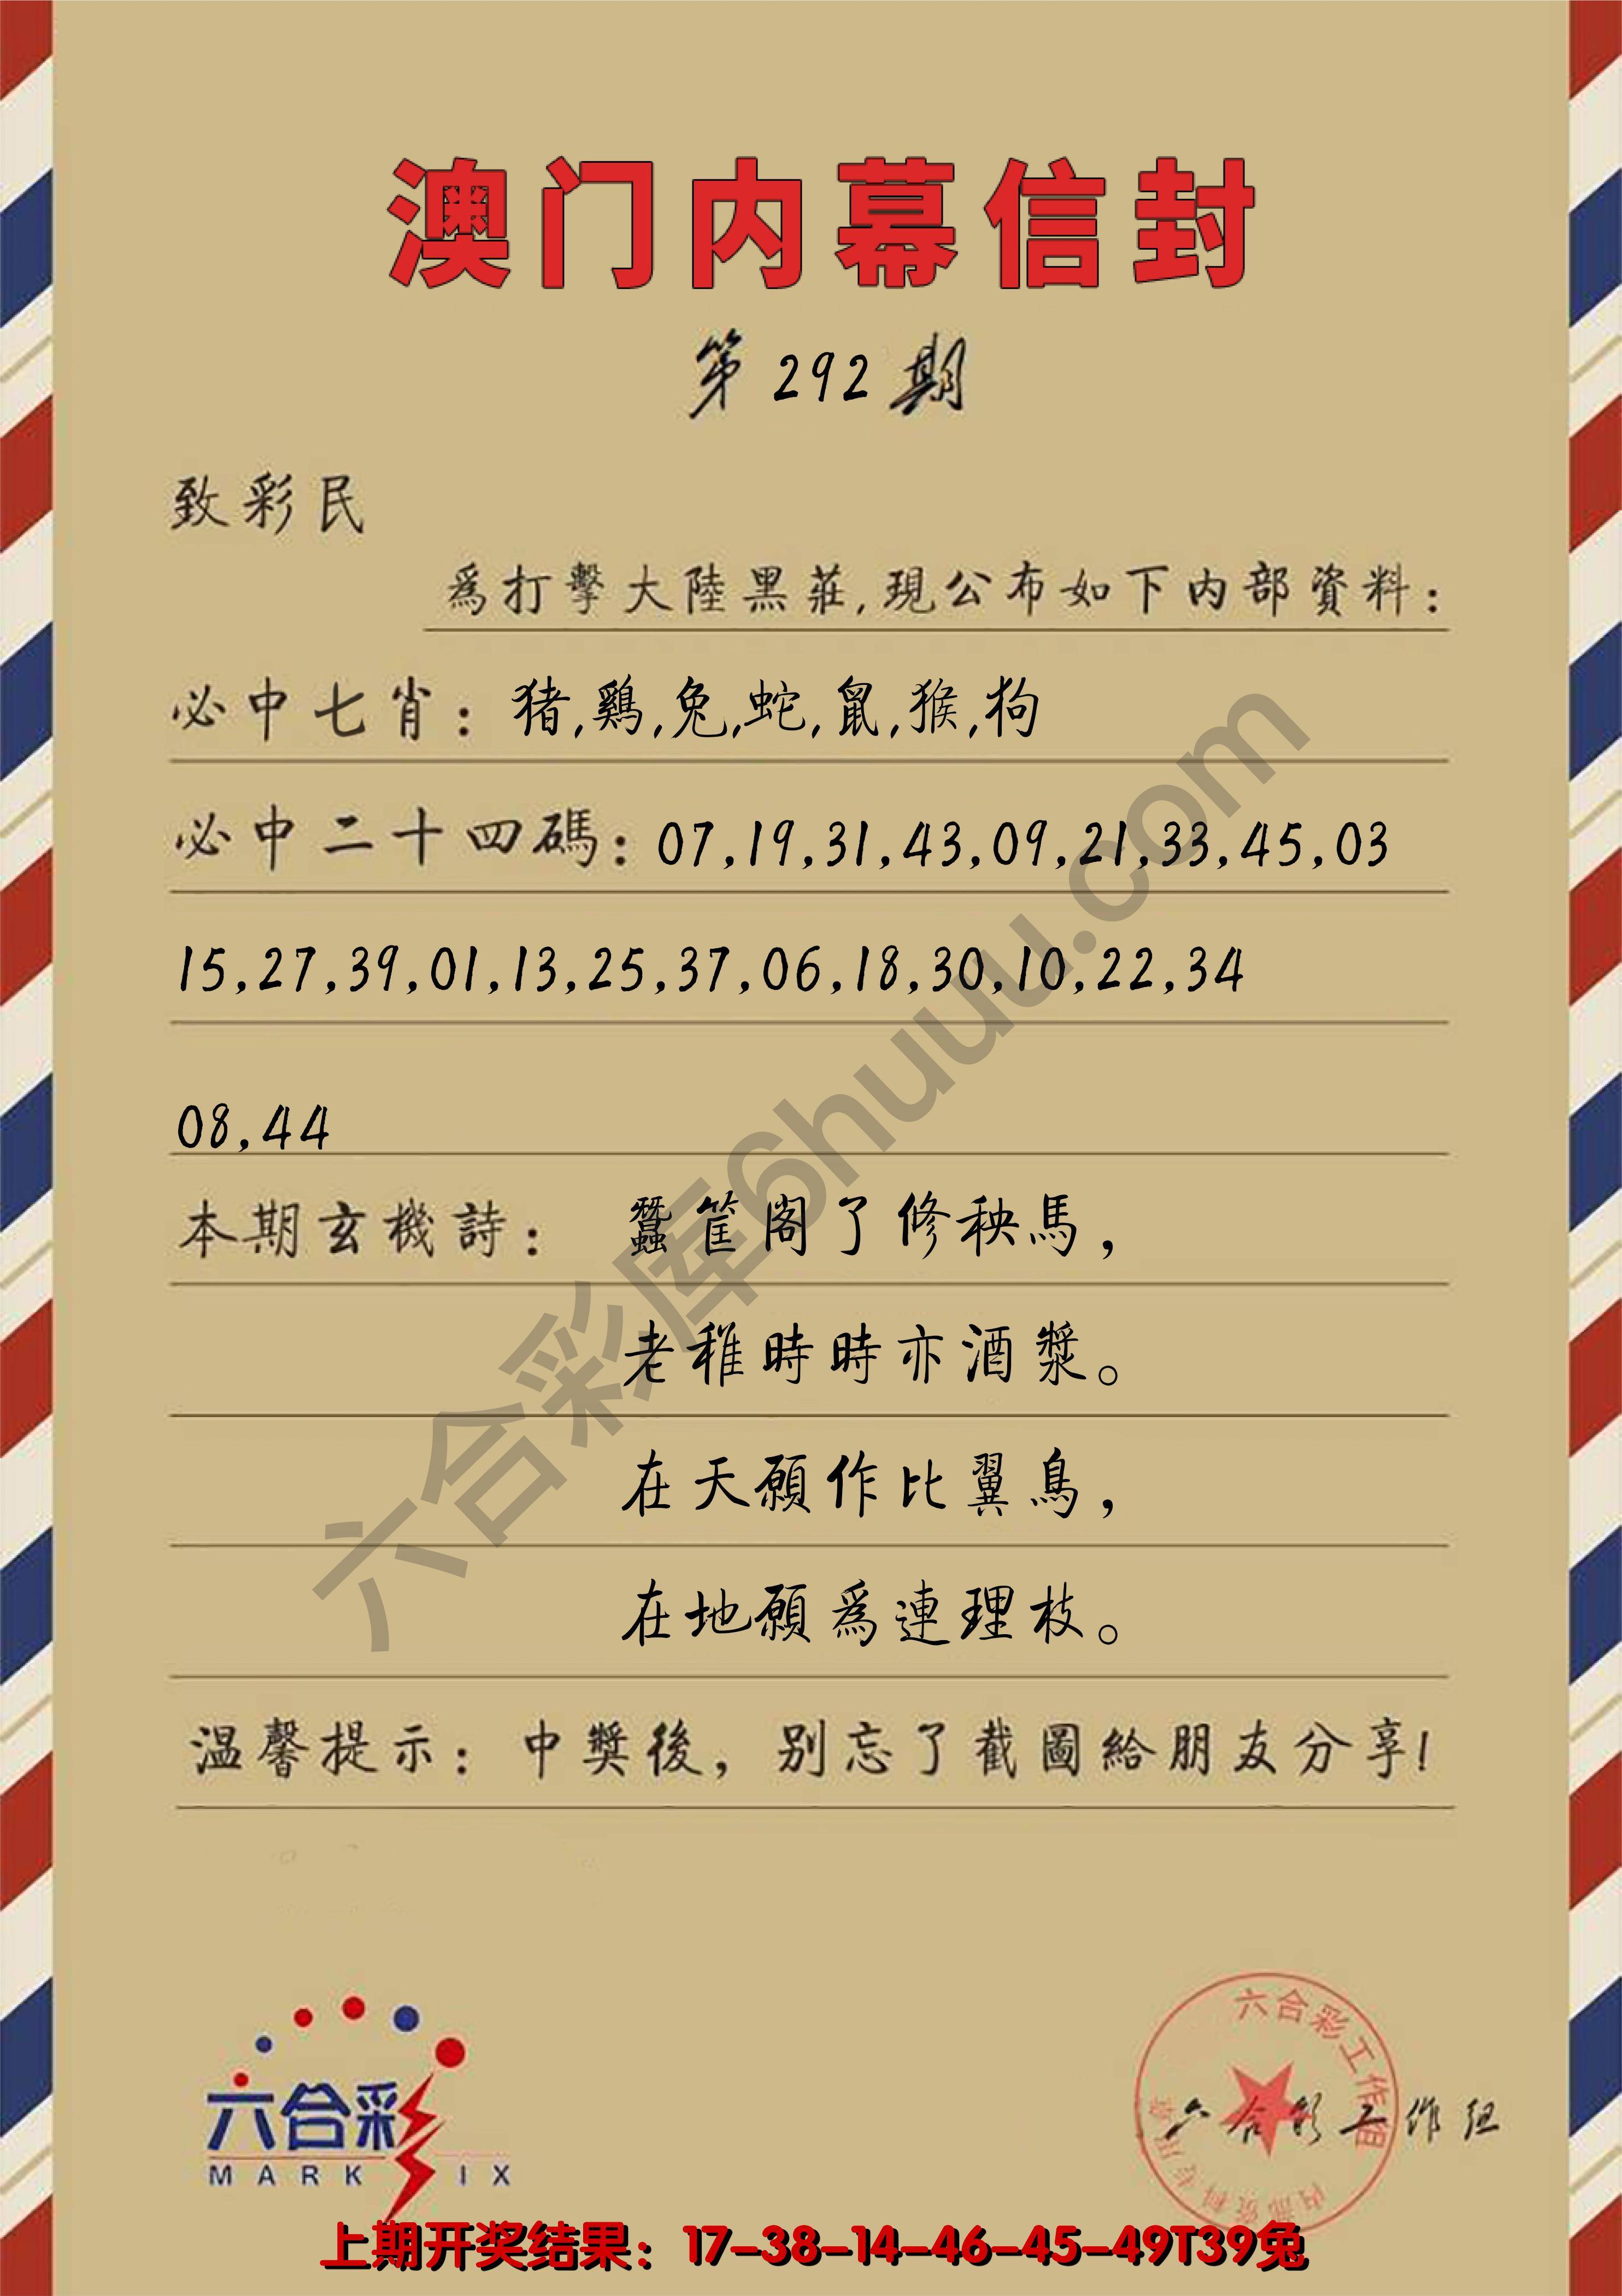 澳门内幕信封
第292期
致彩民
爲打擊大陸黑莊,現公布如下内部資料:
必中七肖:猪,鷄,兔,蛇,鼠,猴,狗
必中二十四碼:07,19,31,43,09,21,33,45,03
15,27,39,01,13,25,37,06,18,30,10,22,34
08,44
本期玄機詩: 蠶筐閣了修秧馬,
老稚時時亦酒漿。
在天願作比翼鳥,
在地願爲連理枝。
温馨提示:中獎後,别忘了截圖給朋友分享!
六合彩库6huuu.com
六合彩
MARK SIX
六合彩工作组
内部资料专用章
六合彩工作组
上期开奖结果:17-38-14-46-45-49T39兔